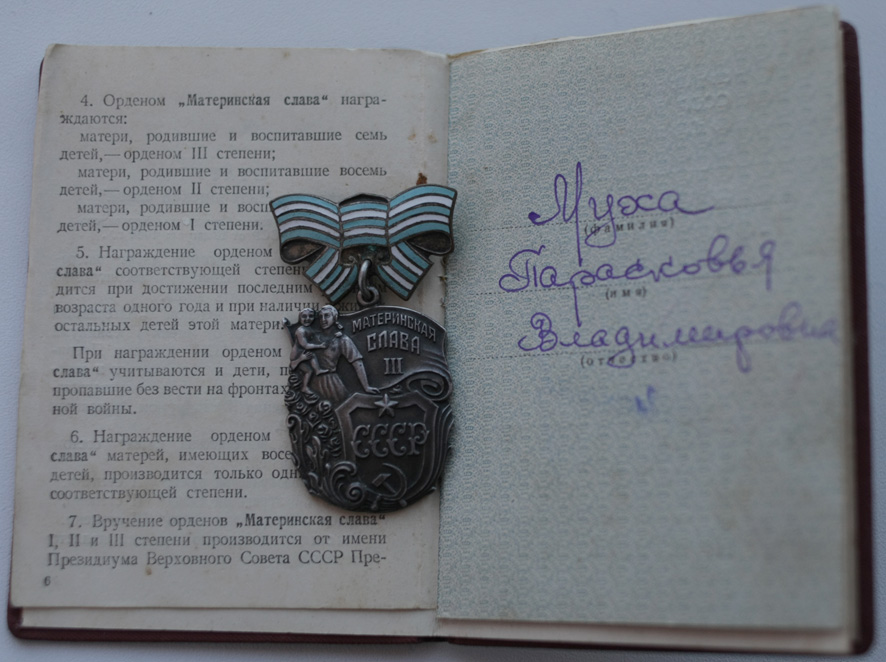 4. Орденом „Материнская слава“ награ-
ждаются:
матери, родившие и воспитавшие семь
детей,— орденом III степени;
матери, родившие и воспитавшие восемь
детей,— орденом II степени;
матери, родившие и
детей,— орденом I степени.
5. Награждение орденом
слава“ соответствующей
дится при достижении последним
возраста одного года и при наличии
остальных детей этой
При награждении орденом
слава“ учитываются и дети,
пропавшие без вести на фронтах
ной войны.
6. Награждение орденом
слава“ матерей, имеющих
детей, производится только
соответствующей степени.
7. Вручение орденов „Материнская слава“
I, II и III степени производится от имени
Президиума Верховного Совета СССР Пре-
6
МАТЕРИНСКАЯ
СЛАВА
III
СССР
Муха
(фамилия)
Парасковья
(имя)
Владимировна
(отчество)